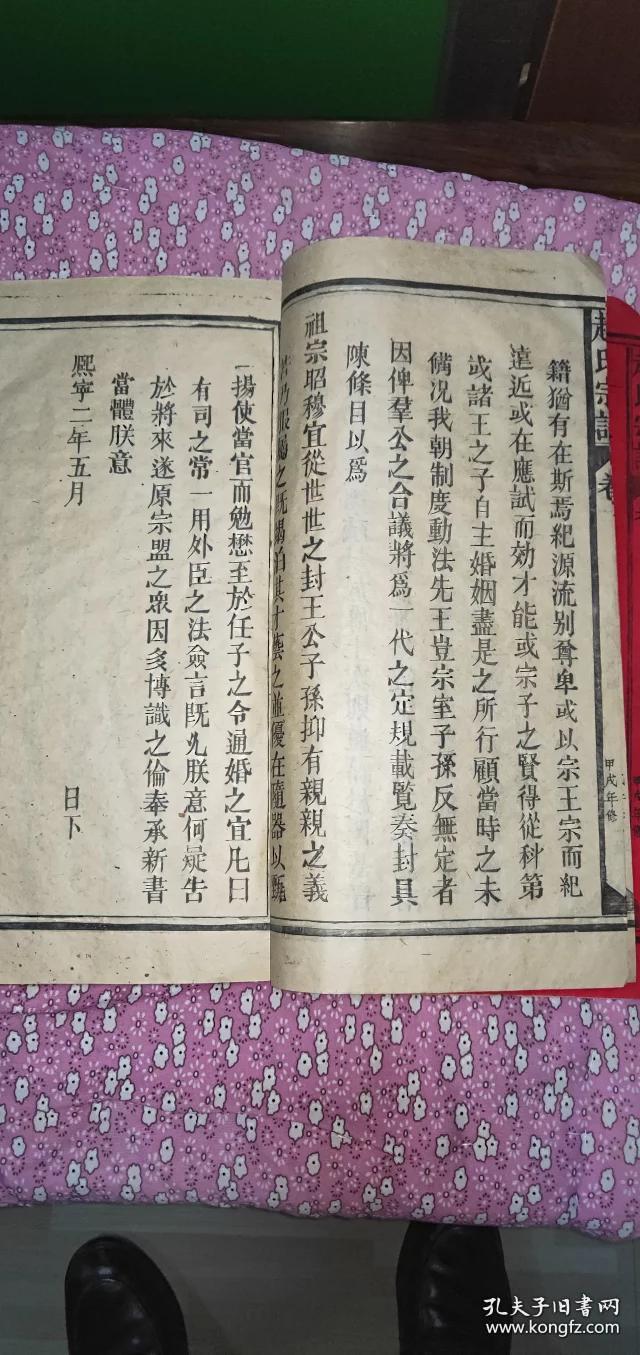 趙氏宗譜
卷
甲戌年修
籍猶有在斯焉紀源流别尊卑或以宗王宗而紀
遠近或在應試而効才能或宗子之賢得從科第
或諸王之子自主婚姻盡是之所行顧當時之未
備况我朝制度動法先王豈宗室子孫反無定者
因俾羣公之合議將爲一代之定規載覧奏封具
陳條目以爲
祖宗昭穆宜從世世之封王公子孫抑有親親之義
若乃服屬之既竭洎其才藝之並優在隨器以甄
揚使當官而勉懋至於任子之令通婚之宜凡曰
有司之常一用外臣之法僉言既允朕意何疑告
於將來遂原宗盟之衆因多博識之倫奉承新書
當體朕意
熈寧二年五月
日下
孔夫子旧書网
www.kongfz.com